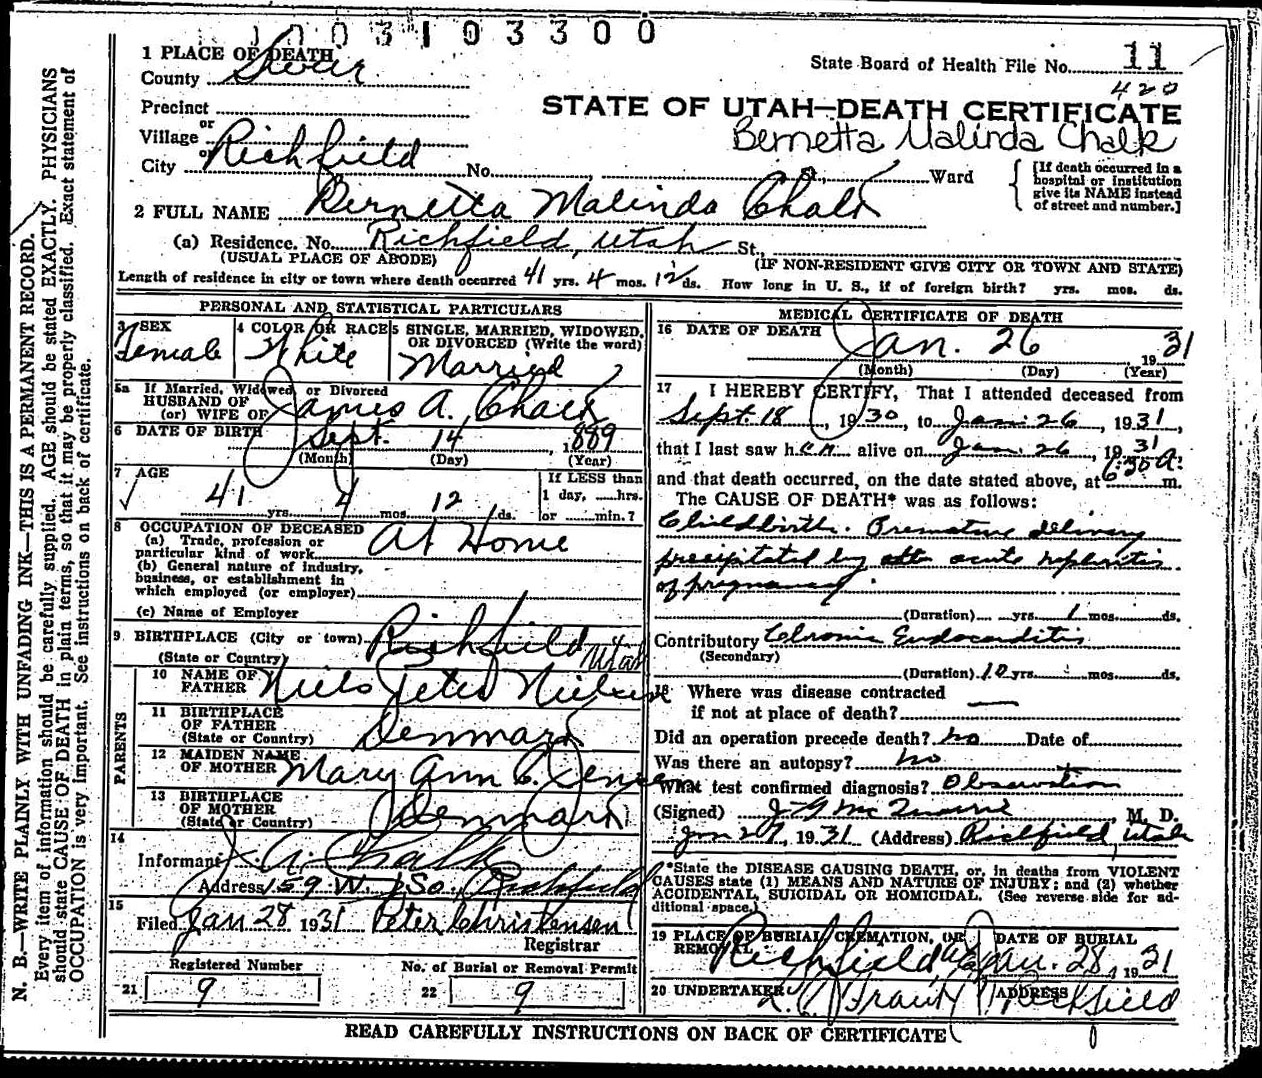 1003103300
1 PLACE OF DEATH
State Board of Health File No. 11
County Sevier
420
Precinct
STATE OF UTAH—DEATH CERTIFICATE
or
Village
Bernetta Malinda Chalk
or
City Richfield No. St., Ward
[If death occurred in a
hospital or institution
give its NAME instead
of street and number.]
2 FULL NAME Bernetta Malinda Chalk
(a) Residence. No. Richfield, Utah St.,
(USUAL PLACE OF ABODE) (IF NON-RESIDENT GIVE CITY OR TOWN AND STATE)
Length of residence in city or town where death occurred 41 yrs. 4 mos. 12 ds. How long in U. S., if of foreign birth? yrs. mos. ds.
PERSONAL AND STATISTICAL PARTICULARS
3 SEX
Female
4 COLOR OR RACE
White
5 SINGLE, MARRIED, WIDOWED,
OR DIVORCED (Write the word)
Married
5a If Married, Widowed or Divorced
HUSBAND OF
(or) WIFE OF James A. Chalk
6 DATE OF BIRTH Sept. 14, 1889
(Month) (Day) (Year)
7 AGE
41 yrs. 4 mos. 12 ds.
If LESS than
1 day, hrs.
or min.?
8 OCCUPATION OF DECEASED
(a) Trade, profession or
particular kind of work At Home
(b) General nature of industry,
business, or establishment in
which employed (or employer)
(c) Name of Employer
9 BIRTHPLACE (City or town) Richfield
(State or Country) Utah
PARENTS
10 NAME OF
FATHER Niels Peter Nielsen
11 BIRTHPLACE
OF FATHER
(State or Country) Denmark
12 MAIDEN NAME
OF MOTHER Mary Ann C. Jensen
13 BIRTHPLACE
OF MOTHER
(State or Country) Denmark
14
Informant J. A. Chalk
Address 159 W. 1 So., Richfield
15
Filed Jan 28 1931 Peter Christensen
Registrar
Registered Number
21 9
No. of Burial or Removal Permit
22 9
MEDICAL CERTIFICATE OF DEATH
16 DATE OF DEATH
Jan. 26 1931
(Month) (Day) (Year)
17 I HEREBY CERTIFY, That I attended deceased from
Sept. 18, 1930, to Jan. 26, 1931,
that I last saw her alive on Jan. 26, 1931
and that death occurred, on the date stated above, at 6:30 A. m.
The CAUSE OF DEATH* was as follows:
Childbirth. Premature delivery
precipitated by acute nephritis
of pregnancy.
(Duration) yrs. 1 mos. ds.
Contributory Chronic Endocarditis
(Secondary)
(Duration) 10 yrs. mos. ds.
18 Where was disease contracted
if not at place of death?
Did an operation precede death? no Date of
Was there an autopsy? no
What test confirmed diagnosis? Observation
(Signed) J. G. McQuarrie, M. D.
Jan 27, 1931 (Address) Richfield, Utah
*State the DISEASE CAUSING DEATH, or, in deaths from VIOLENT
CAUSES state (1) MEANS AND NATURE OF INJURY; and (2) whether
ACCIDENTAL, SUICIDAL OR HOMICIDAL. (See reverse side for ad-
ditional space.)
19 PLACE OF BURIAL, CREMATION, OR
REMOVAL Richfield
DATE OF BURIAL
Jan. 28, 1931
20 UNDERTAKER
ADDRESS
Richfield
READ CAREFULLY INSTRUCTIONS ON BACK OF CERTIFICATE
N. B.—WRITE PLAINLY WITH UNFADING INK—THIS IS A PERMANENT RECORD.
Every item of information should be carefully supplied. AGE should be stated EXACTLY. PHYSICIANS
should state CAUSE OF DEATH in plain terms, so that it may be properly classified. Exact statement of
OCCUPATION is very important. See instructions on back of certificate.